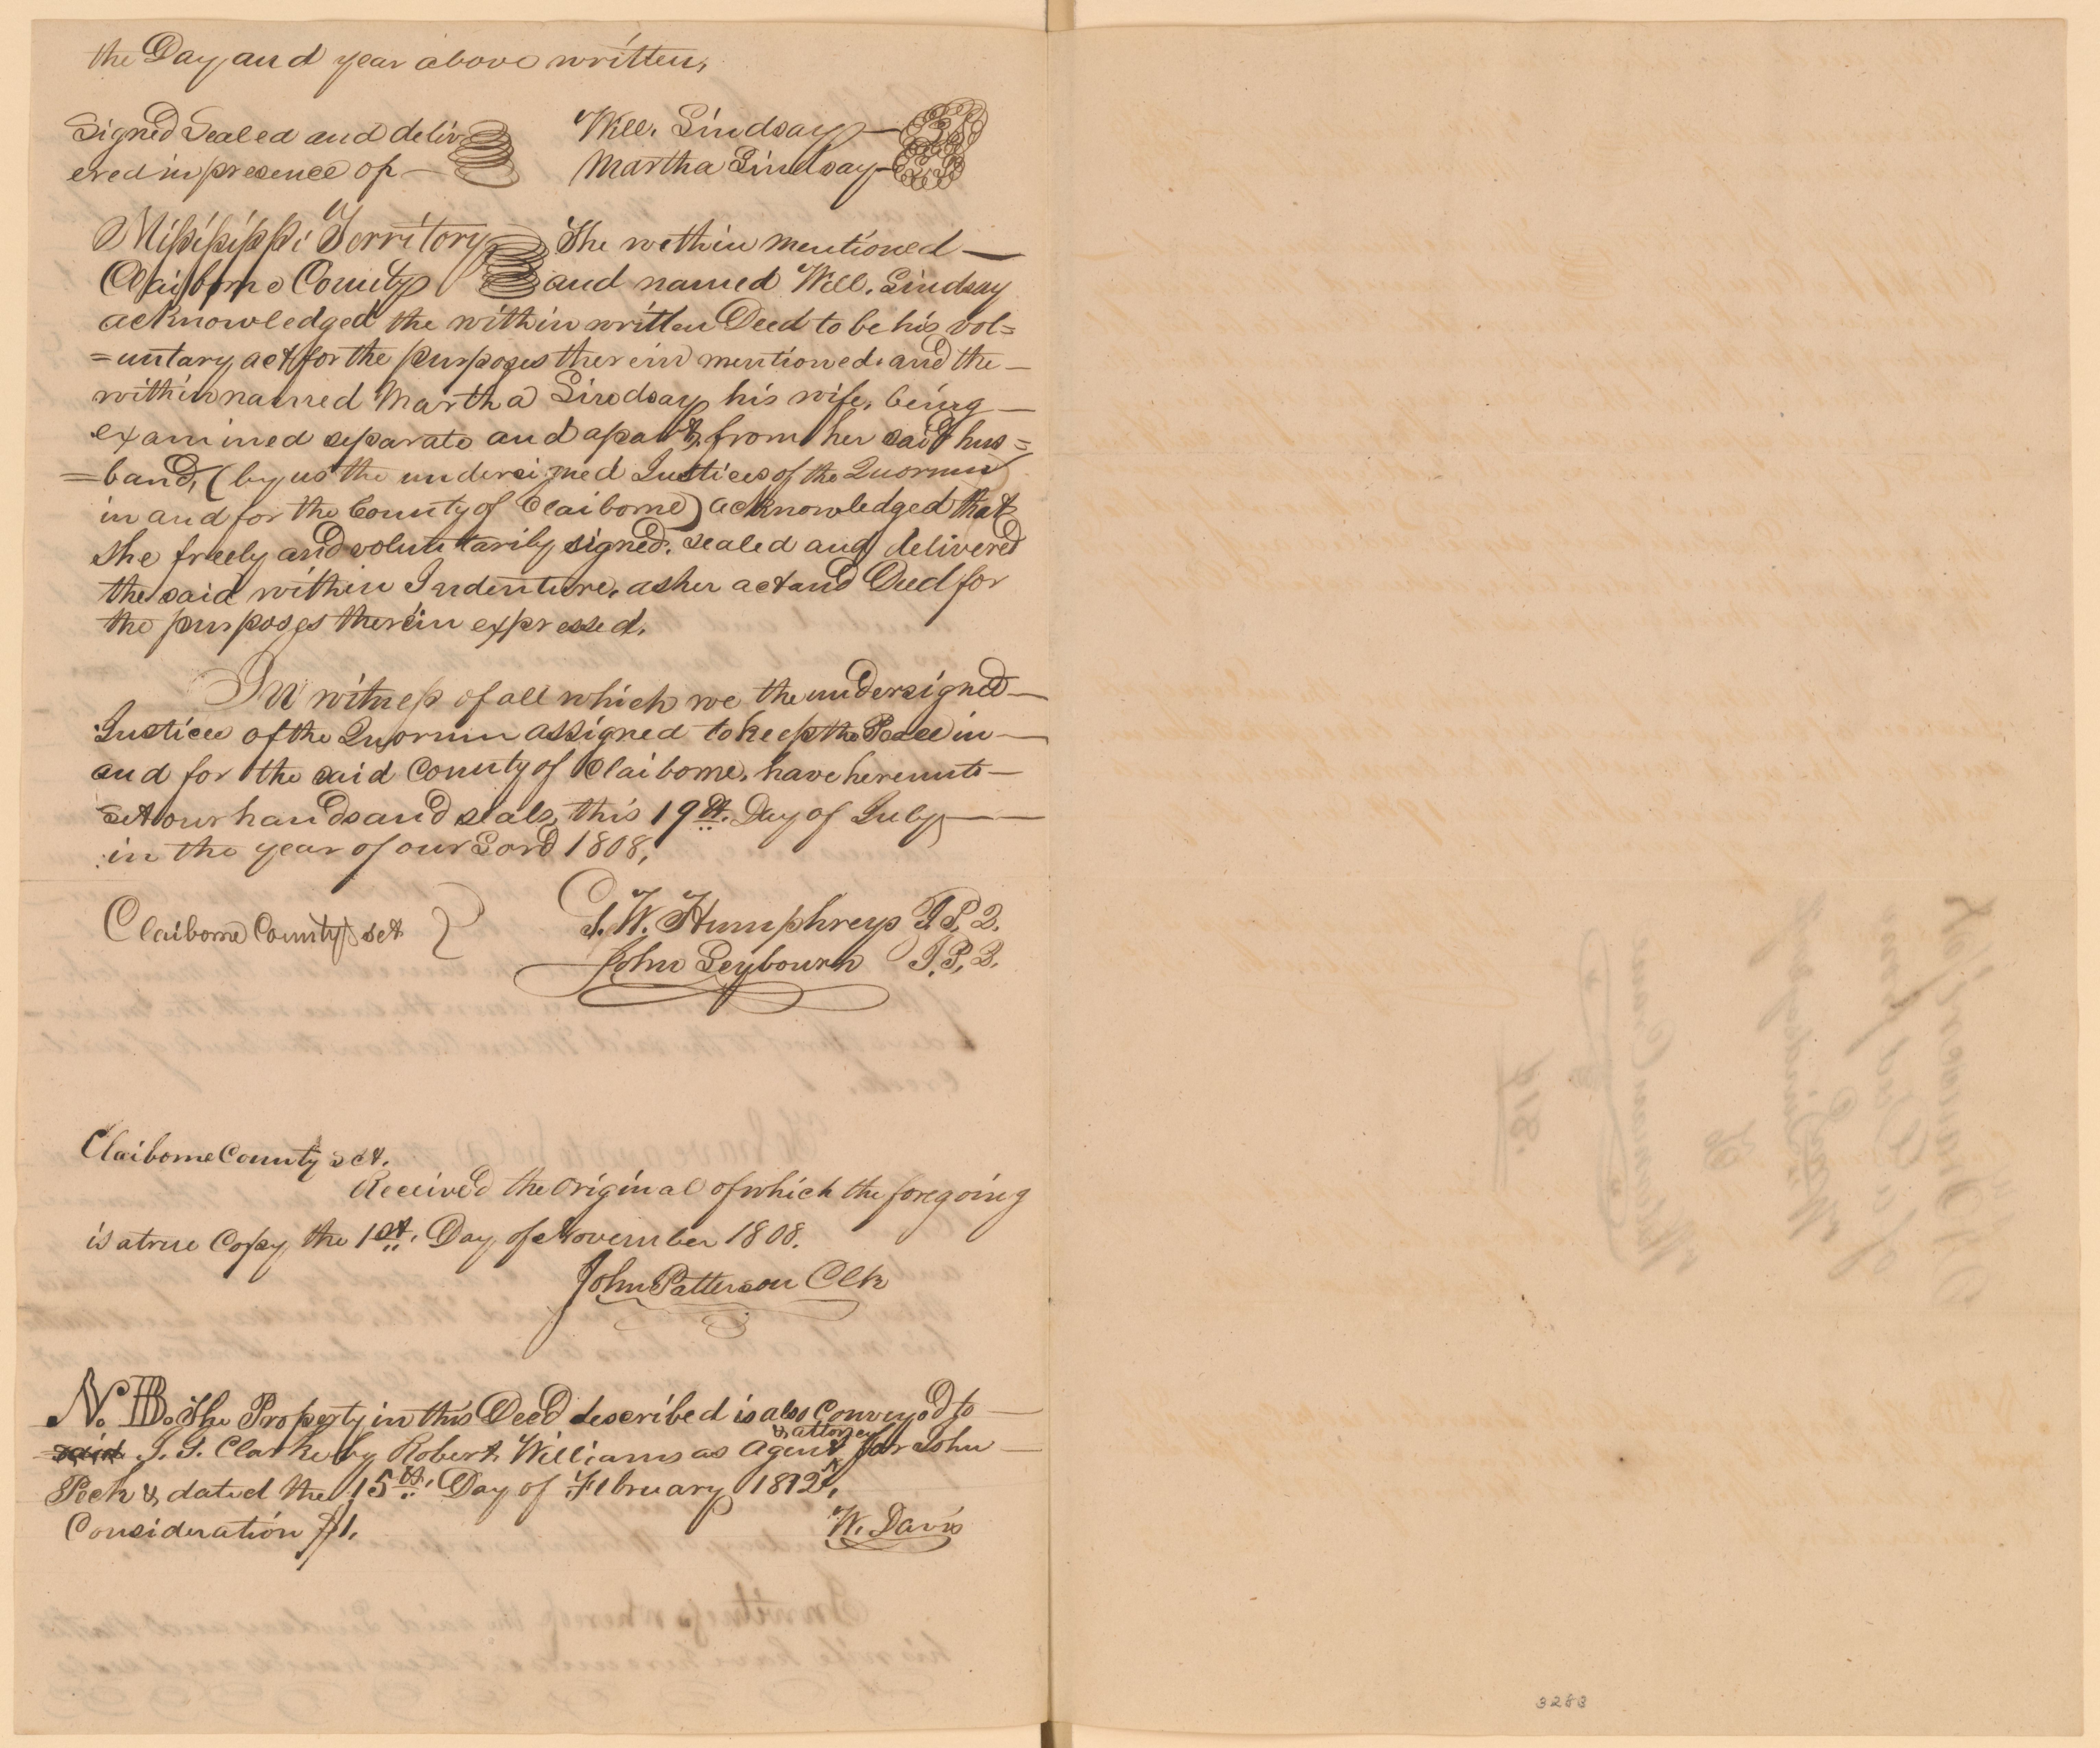 the Day and year above written,
Signed Sealed and deliv
ered in presence of —
Will. Lindsay —
Martha Lindsay —
Missisippi Territory
Claiborne County
The within mentioned —
and named Will. Lindsay
acknowledged the within written Deed to be his vol=
=untary act for the purposes therein mentioned. and the —
within named Martha Lindsay his wife, being —
examined separate and apart, from her said hus=
=band, (by us the undersigned Justices of the Quorum
in and for the County of Claiborne) acknowledged that
she freely and voluntarily signed. sealed and delivered
the said within Indenture, as her act and Deed for
the purposes therein expressed.
In witness of all which we the undersigned —
Justices of the Quorum assigned to keep the Peace in —
and for the said County of Claiborne, have hereunto —
set our hands and seals, this 19th. Day of July —
in the year of our Lord 1808,
Claiborne County sct
G. W. Humphreys J. P. Q.
John Seybourn J. P. Q.
Claiborne County sct.
Received the Original of which the foregoing
is a true Copy, the 1st. Day of November 1808.
John Patterson Clk
N. B. The Property in this Deed described is also Conveyed to —
said J. S. Clarke by Robert Williams as Agent & attorney for John —
Peck &, dated the 15th. Day of February 1812,
Consideration $1.
W. Davis
3283